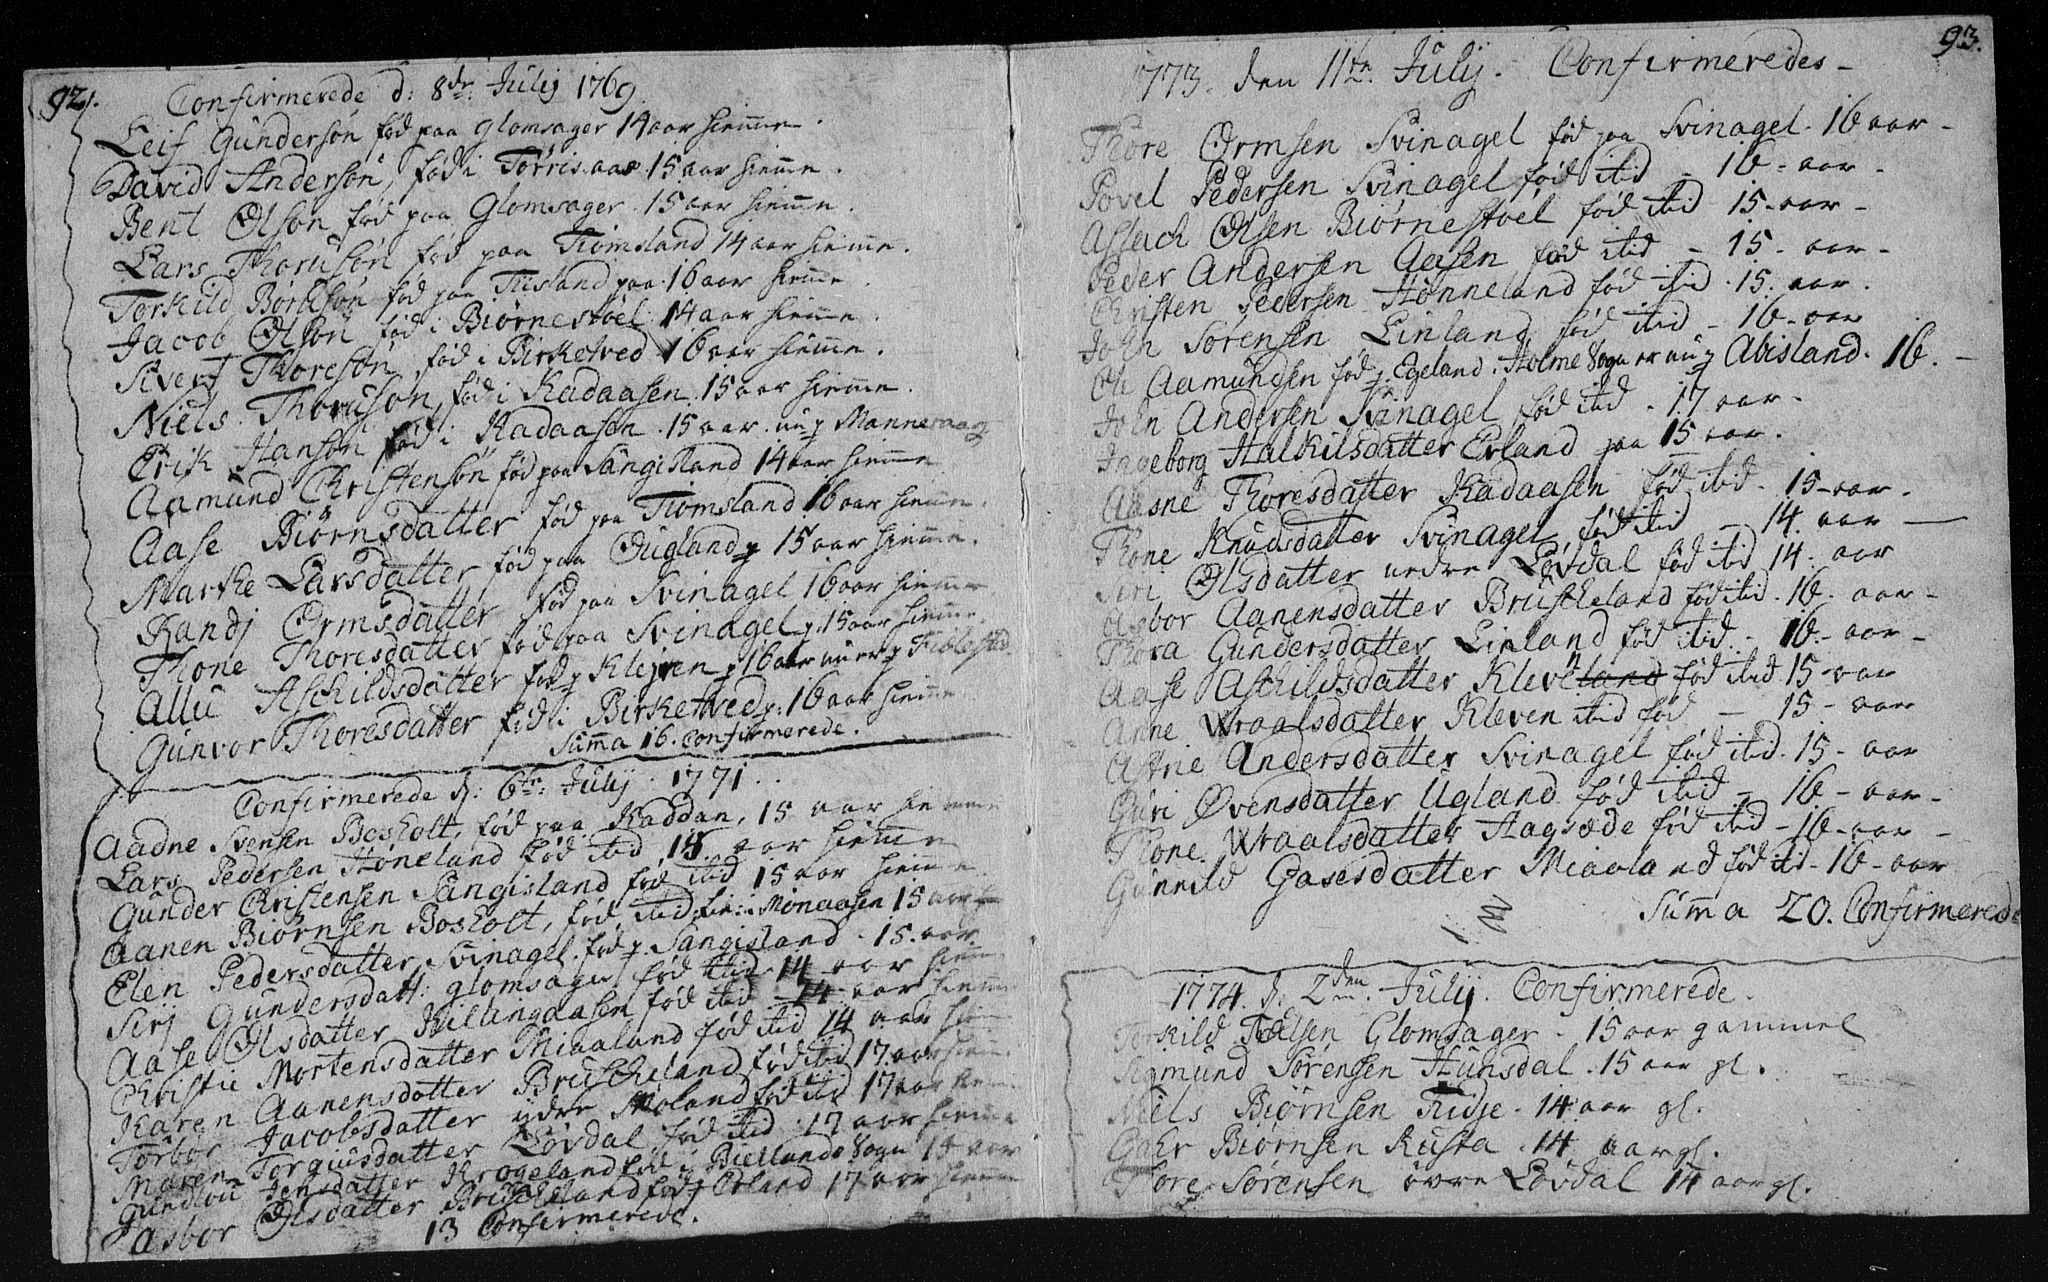 92.
Confirmerede d: 8de Julij 1769.
Leif Gundersøn fød paa Glomsager 14 aar hiemme.
David Andersøn, fød i Torrisaas 15 aar hiemme.
Bent Olsøn fød paa Glomsager 15 aar hiemme.
Lars Thorusøn fød paa Tiomsland 14 aar hiemme.
Torkild Børusøn fød paa paa 16 aar hiemme.
Jacob Olsøn fød i Biørnestoel 14 aar hiemme.
Sivert Thoresøn, fød i Birketved 16 aar hiemme.
Niels Thorusøn, fød i Kadaasen 15 aar hiemme.
Erik Hansøn fød i Kadaasen 15 aar nu p
Aamund Christensøn fød paa Sangisland 14 aar hiemme
Aase Biørnsdatter fød paa Tiomsland 16 aar hiemme.
Marthe Larsdatter fød paa Ougland p 15 aar hiemme.
Randj Ormsdatter fød paa Svinagel 16 aar hiemme
Thone Thoresdatter fød paa Svinagel p. 15 aar hiemme.
Allu Aschildsdatter fød p Klejven p 16 aar nu er p
Gunvor Thoresdatter fød i Birketved p: 16 aar hiemme
Summa 16. Confirmerede.
Confirmerede d: 6te Julij 1771.
Aadne Svensen Bosholt, fød paa Kaddan, 15 aar hiemme
Lars Pedersen Høneland fød itid 15 aar hiemme
Gunder Christensen Sangisland fød itid 15 aar hiemme
Aanen Biørnsen Bosholt, fød itid Monaasen 15 aar
Elen Pedersdatter Svinagel fød p Sangisland 15. aar
Sirj Gundersdatt: Glomsager fød itid 14 aar hiemme
Aase Olsdatter Killingaasen fød itid 14 aar hiemme
Christie Mortensdatter Miaaland fød itid 14 aar hiemme
Karen Aanensdatter Bruscheland fød itid 17 aar hiemme
Torbor Jacobsdatter ydre Moland fød itid 17 aar
Maren Torgiusdatter Løvdal fød itid 17 aar hiemme
Gundlou Jensdatter Krogeland fød i Biellands Sogn 15 aar
Asbor Olsdatter Bruscheland fød p Erland 17 aar hiemme
13 Confirmerede.
93.
1773. den 11te Julij. Confirmeredes -
Thore Ormsen Svinagel fød paa Svinagel. 16 aar -
Povel Pedersen Svinagel fød itid - 16 - aar -
Aslach Olsen Biørnestoel fød itid 15 - aar -
Peder Andersen Aasen fød itid - 15 - aar -
Christen Pedersen Hønneland fød itid 15. aar.
John Sørensen Linland fød itid - 16 - aar
Ole Aamundsen fød p. Egeland i Holme Sogn er nu p Abisland. 16. -
John Andersen Svinagel fød itid - 17 aar -
Ingeborg Halkilsdatter Erland paa 15 aar.
Aasne Thoresdatter Kadaasen fød itid. 15 - aar.
Thone Knudsdatter Svinagel fød itid - 14. aar -
Siri Olsdatter nedre Løvdal fød itid 14. aar
Asbor Aanensdatter Bruscheland fød itid. 16. aar -
Thora Gundersdatter Linland fød itid - 16 - aar -
Aase Aschildsdatter Kleven fød itid 15 - aar
Anne Wraalsdatter Kleven itid fød - 15 - aar
Astrie Andersdatter Svinagel fød itid. 15 - aar
Guri Øvensdatter Ugland fød itid - 16 - aar -
Thone Wraalsdatter Hagsæde fød itid - 16 - aar -
Gunnild Gasesdatter Miaaland fød itid - 16 - aar
Summa 20. Confirmerede
1774. d: 2den Julij. Confirmerede.
Torkild Glomsager - 15 aar gammel
Sigmund Sørensen Hunsdal. 15 aar gl.
Niels Biørnsen Fidje. 14 aar gl.
Gahr Biørnsen Rusta. 14 aar gl.
Thore Sørensen øvre Løvdal 14 aar gl.